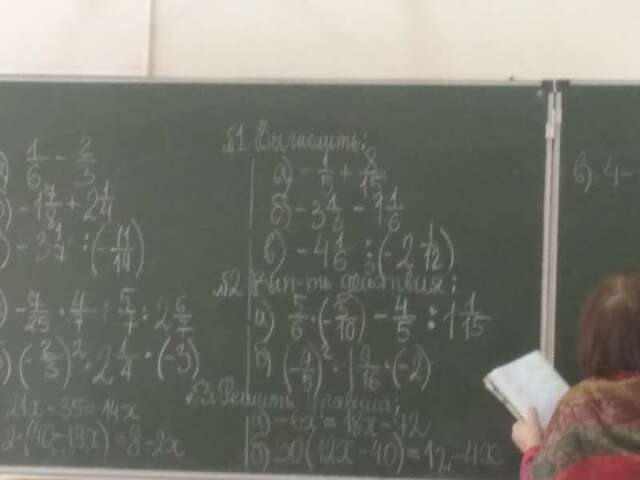 а) 1/6 - 2/3
б) -1 7/8 + 2 1/4
) -3 1/7 : (-11/14)
) -4/25 · 4/7 : 5/7 : 2 6/7
б) (-2/3)² · 2 1/4 · (-3)
21x - 35 = 14x
2 - (40 - 18x) = 8 - 2x
№1 Вычислить:
а) -1/5 + 8/15
б) -3 1/3 - 1 1/6
в) -4 1/6 : (-2 1/12)
№2 Вып-ть действия:
а) 5/6 · (-5/10) - 4/5 : 1 1/15
б) (-4/5)² · 1 9/16 · (-2)
№3. Решить
а) -6x = 18x - 72
б) 30(12x - 40) = 12 - 4x
в) 4 -